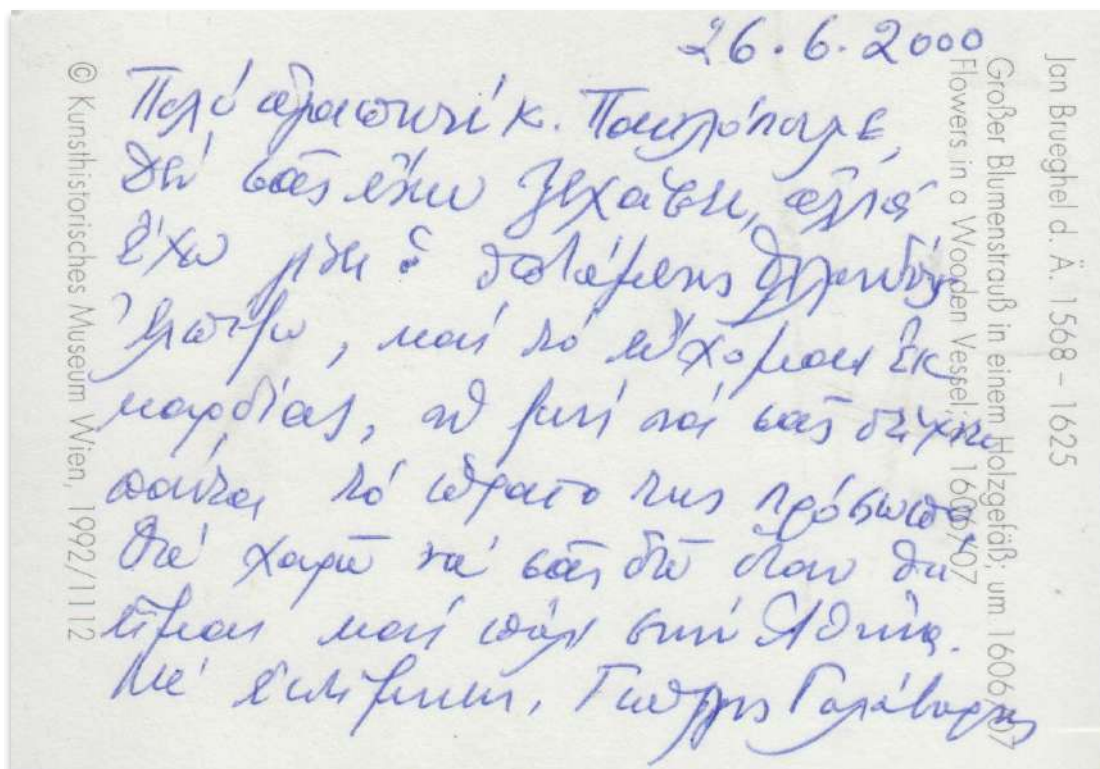 26.6.2000
Πολύ αγαπητέ κ. Παυλόπουλε,
Δέν σᾶς ἔχω ξεχάσει, ἀλλά
ἔχω
καί τό εὔχομαι ἐκ
καρδίας, ἡ ζωή νά σᾶς δείχνει
πάντα τό ὡραῖο της πρόσωπο.
Θά χαρῶ νά σᾶς δῶ ὅταν θά
εἶμαι καί πάλι στήν Ἀθήνα.
Μέ ἐκτίμηση, Γιώργης
Jan Brueghel d. Ä. 1568 – 1625
Großer Blumenstrauß in einem Holzgefäß; um 1606/07
Flowers in a Wooden Vessel; 1606/07
© Kunsthistorisches Museum Wien, 1992/1112